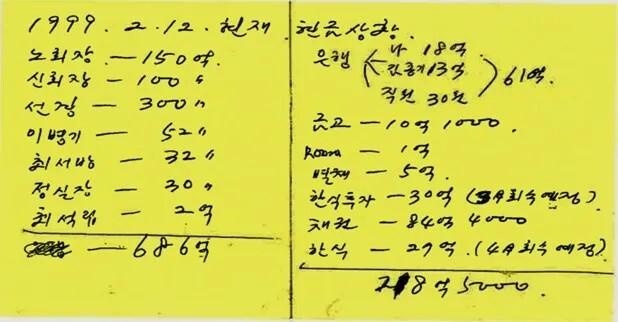 1999. 2. 12. 현재
노회장 — 150억.
신회장 — 100 〃
선장 — 300 〃
이병기 — 52 〃
최서방 — 32 〃
정실장 — 30 〃
최석림 — 2억
— 686억
현금상황.
은행 나 18억
김종기 13억
직원 30원
61억.
금고 — 10억 1000.
Room — 1억
별채 — 5억.
한식투자 — 30억 (5月회수예정)
채권 — 84억 4000
한식 — 27억. (4月회수예정)
218억 5000.